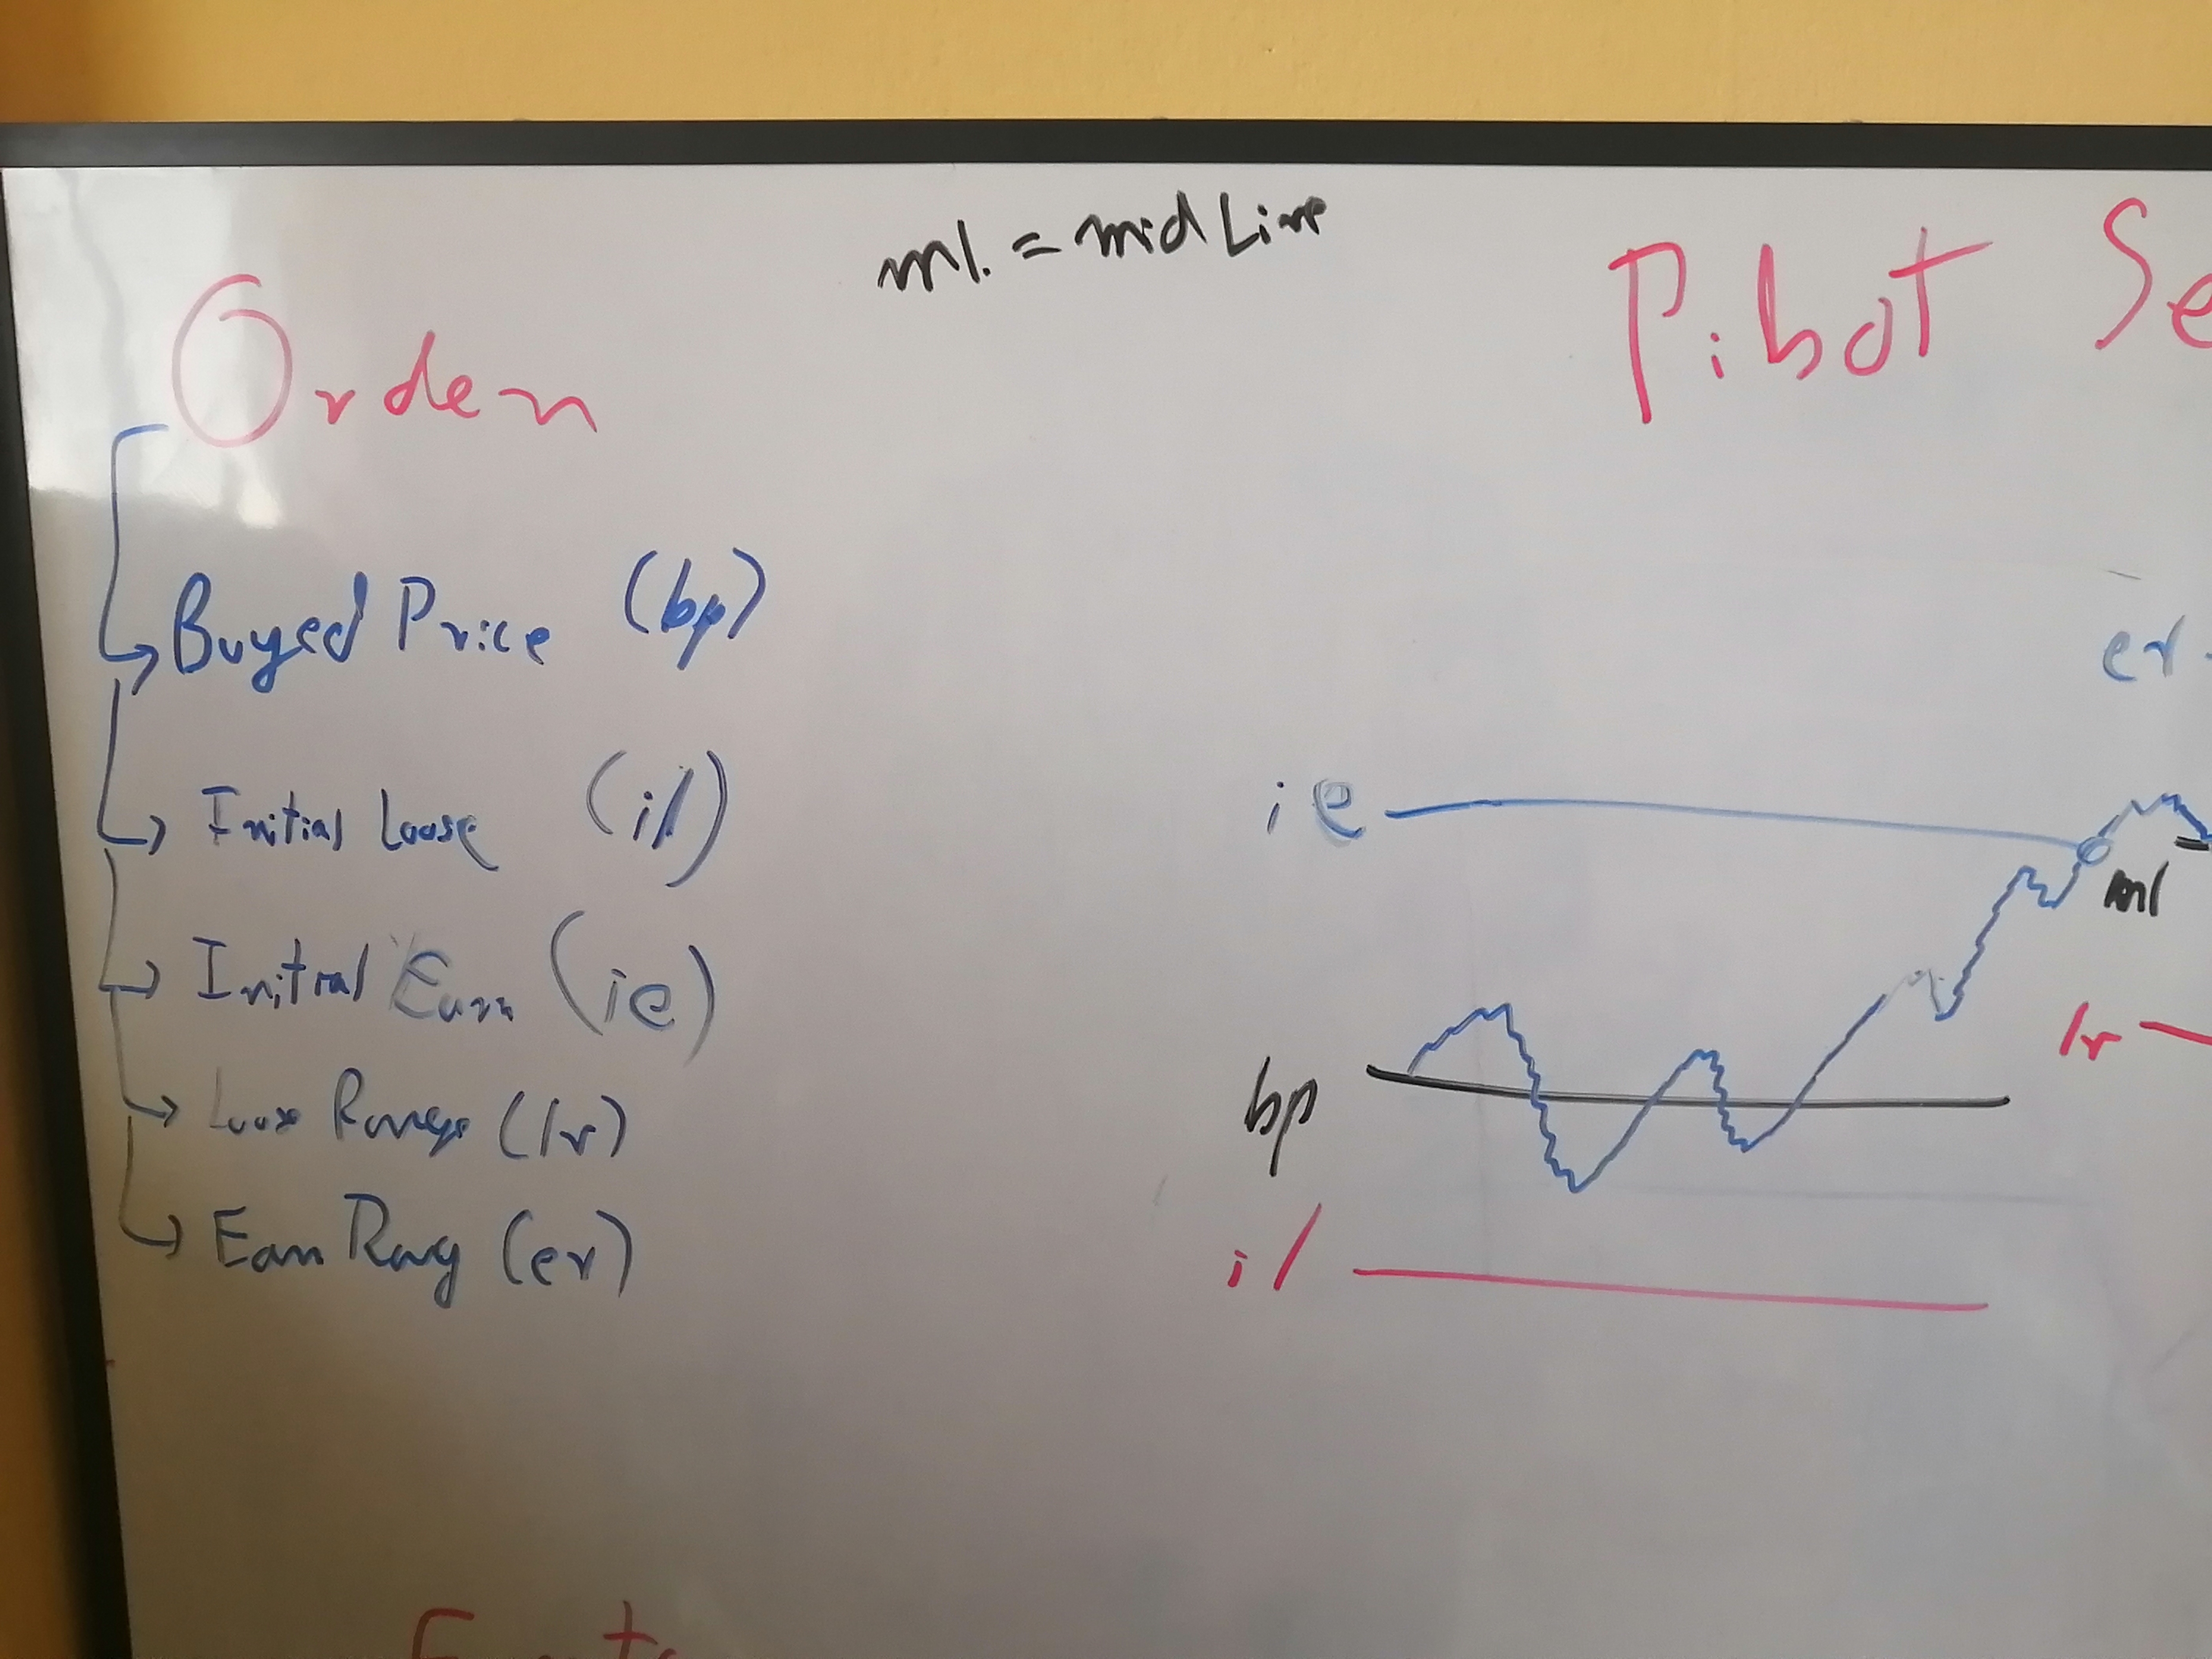 ml. = mid Line
Orden
Pibot Se
Buyed Price (bp)
Initial Loose (il)
Initial Earn (ie)
Loose Range (lr)
Earn Rang (er)
er
ie
ml
lr
bp
il